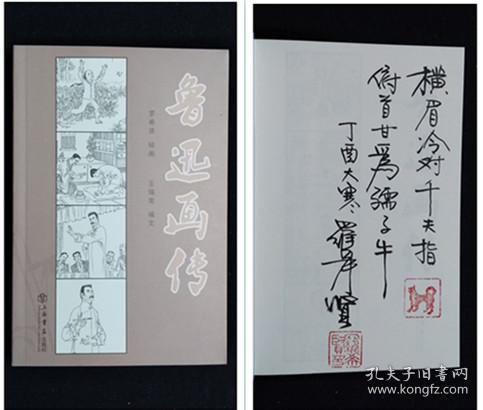 鲁迅画传
罗希贤 绘画
王锡荣 编文
上海书店出版社
横眉冷对千夫指
俯首甘為孺子牛
丁酉大寒 羅希賢
孔夫子旧书网
www.kongfz.com